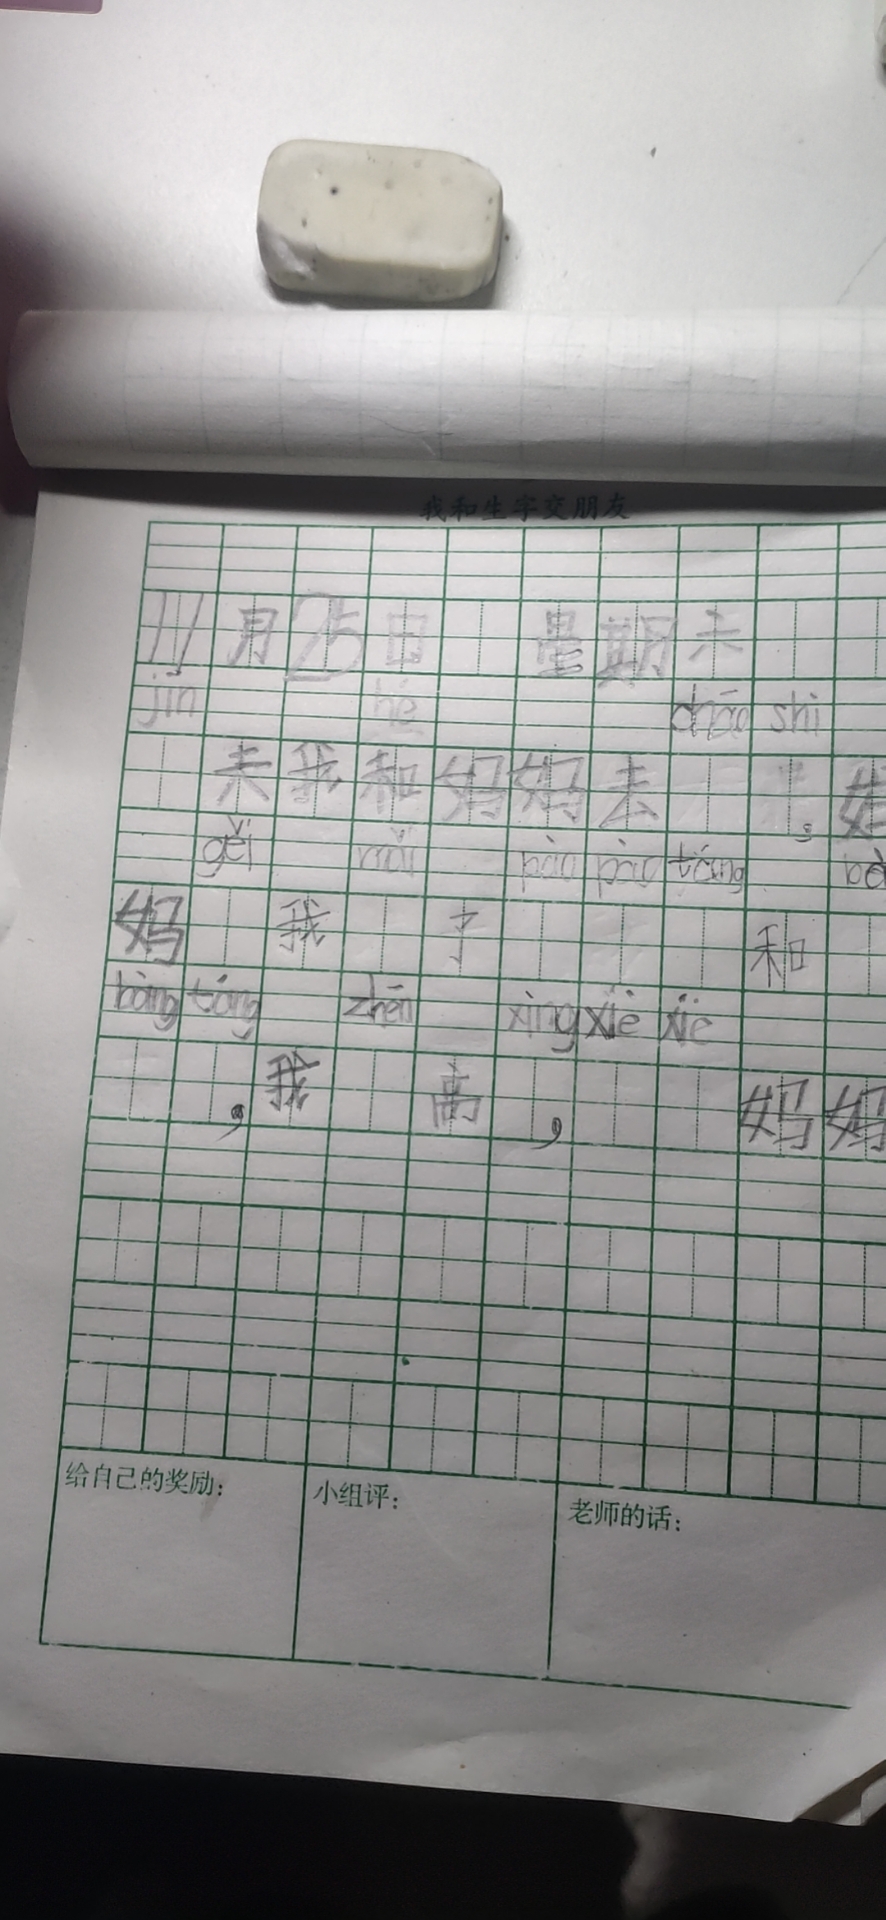 我和生字交朋友
11月25日 星期六
jīn hé chāo shì
天我和妈妈去 ，妈
gěi mǎi pào pào táng bàng
妈 我 了 和
bàng táng zhēn xìng xiè xie
，我 高 ， 妈妈
给自己的奖励：
小组评：
老师的话：